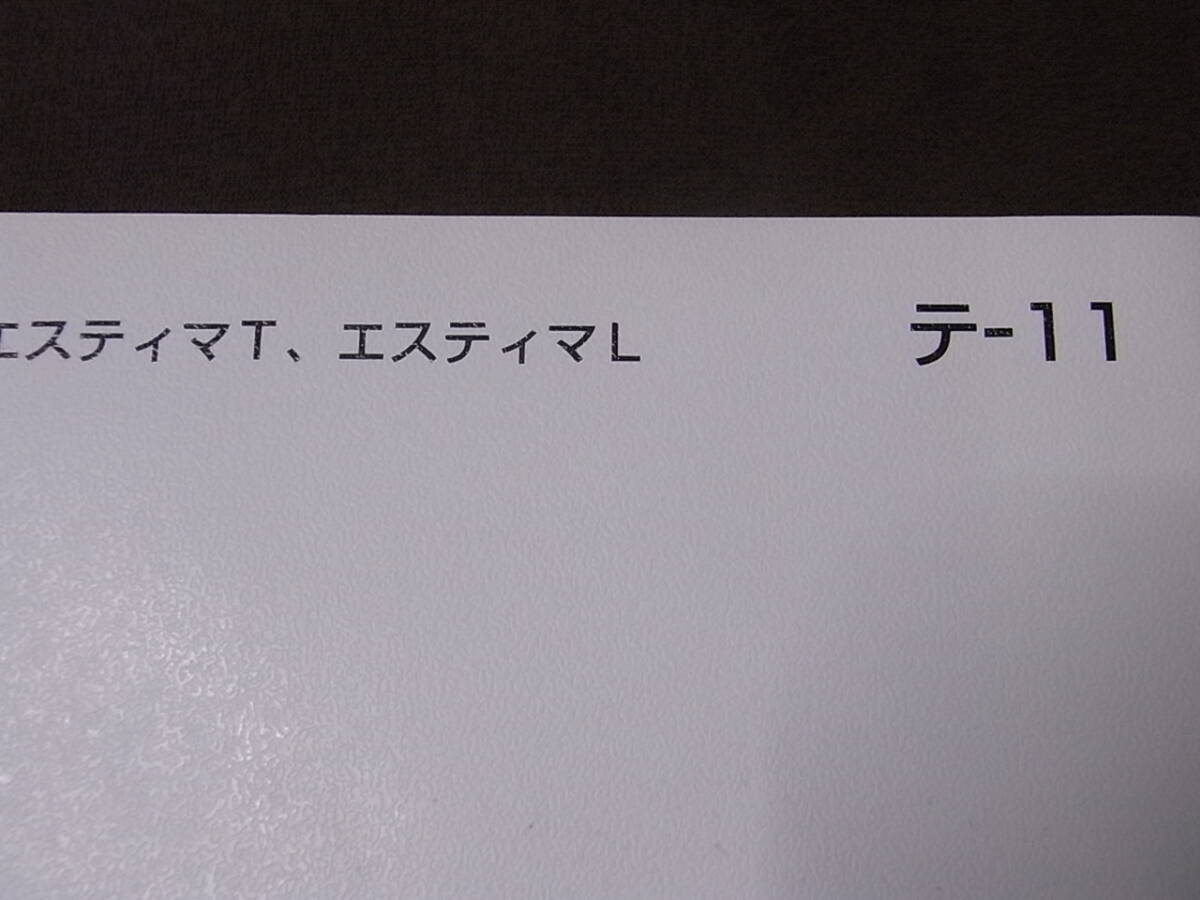 エスティマT、エスティマL テ-11